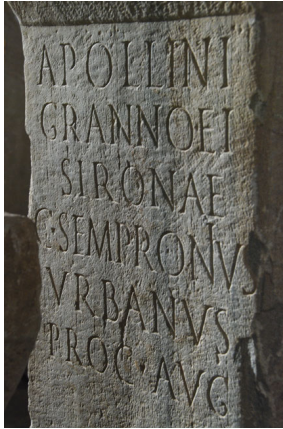 APOLLINI
GRANNOEI
SIRONAE
C·SEMPRONVS
VRBANVS
PROC·AVG